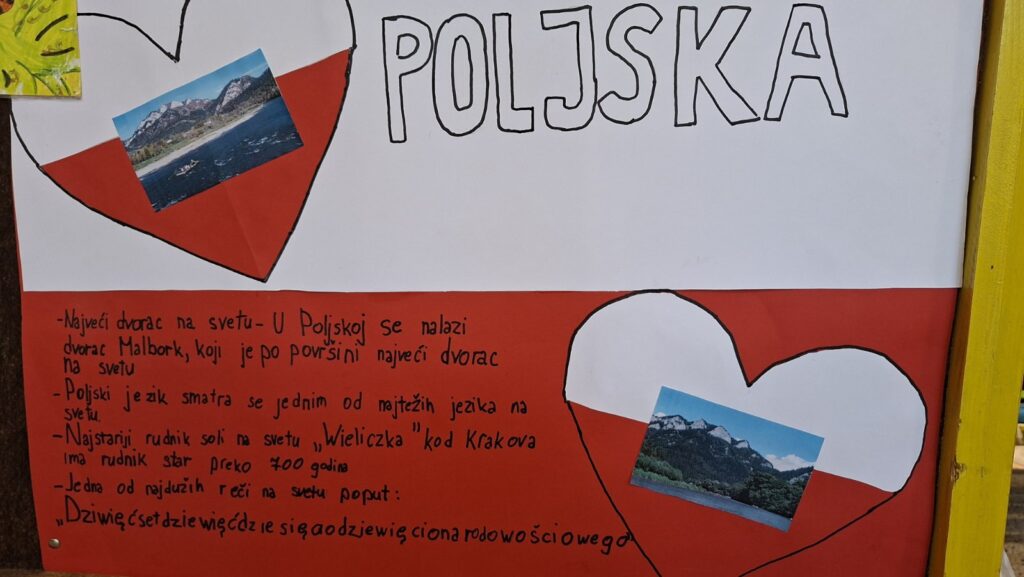 POLJSKA
-Najveći dvorac na svetu- U Poljskoj se nalazi
dvorac Malbork, koji je po površini najveći dvorac
na svetu
- Poljski jezik smatra se jednim od najtežih jezika na
svetu.
- Najstariji rudnik soli na svetu „Wieliczka" kod Krakova
ima rudnik star preko 700 godina
- Jedna od najdužih reči na svetu poput:
„Dziwięćsetdziewięćdziesięciodziewięcionarodowościowego"